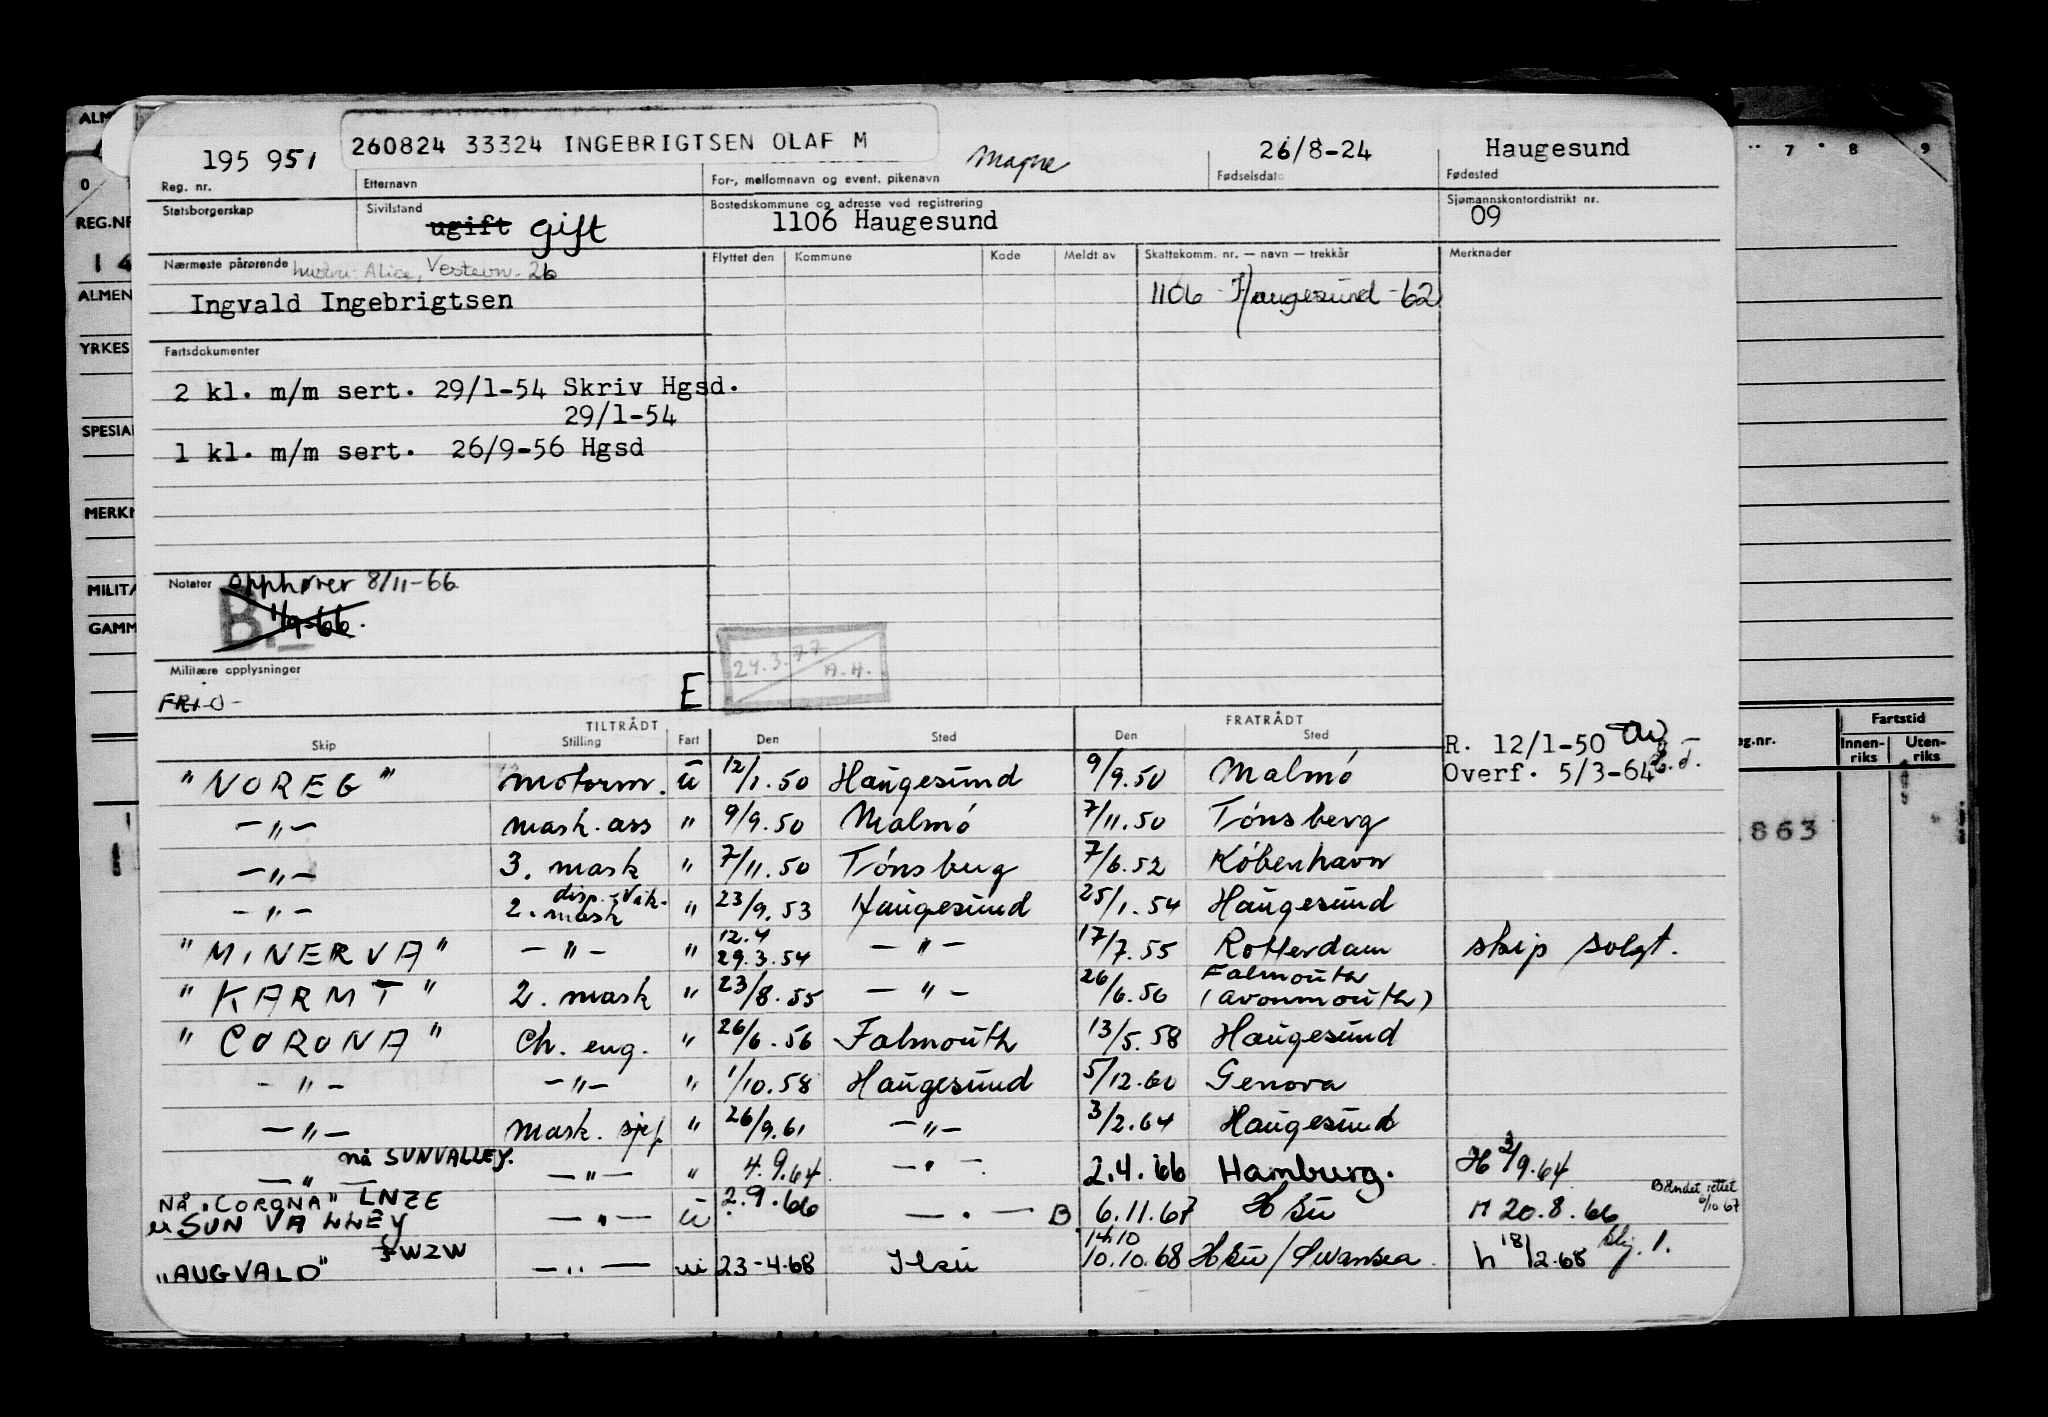 195 951
260824 33324 INGEBRIGTSEN OLAF M
Magne
26/8-24
Haugesund
Reg. nr.
Etternavn
For-, mellomnavn og event. pikenavn
Fødselsdato
Fødested
Statsborgerskap
Sivilstand
ugift gift
Bostedskommune og adresse ved registrering
1106 Haugesund
Sjømannskontordistrikt nr.
09
Nærmeste pårørende hustru: Alice, Vestevn. 26
Ingvald Ingebrigtsen
Flyttet den Kommune Kode Meldt av Skattekomm. nr. — navn — trekkår Merknader
1106 Haugesund -62
Fartsdokumenter
2 kl. m/m sert. 29/1-54 Skriv Hgsd.
29/1-54
1 kl. m/m sert. 26/9-56 Hgsd
Notater Opphører 8/11-66
B. 1/9-66.
24.3.77
A.H.
Militære opplysninger
FRI-O-
E
TILTRÅDT FRATRÅDT
Skip Stilling Fart Den Sted Den Sted
R. 12/1-50
Overf. 5/3-64
"NOREG" motorm. u 12/1.50 Haugesund 9/9.50 Malmö
—"— mask. ass " 9/9.50 Malmö 7/11.50 Tönsberg
—"— 3. mask " 7/11.50 Tönsberg 7/6.52 Köbenhavn
—"— 2. mask disp.-vik. " 23/9.53 Haugesund 25/1.54 Haugesund
"MINERVA" —"— " 12.4 29.3.54 —"— 17/7.55 Rotterdam skip solgt.
"KARMT" 2. mask " 23/8.55 —"— 26/6.56 Falmouth (Avonmouth)
"CORONA" Ch. eng. " 26/6.56 Falmouth 13/5.58 Haugesund
—"— —"— " 1/10.58 Haugesund 5/12.60 Genova
—"— Mask. sjef " 26/9.61 —"— 3/2.64 Haugesund
—"— nå SUNVALLEY. —"— " 4.9.64 —"— 2.4.66 Hamburg. H 3/9.64
NÅ "CORONA" LNZE
SUN VALLEY —"— u 2.9.66 —"— B 6.11.67 HSu M 20.8.66 Båndet rettet 6/10 67
"AUGVALD" JWZW —"— u 23-4-68 Hsu 14.10 10.10.68 HSu/Swansea. h 18/2.68 Blj. 1.
ALM
0
REG.NR
1 4
ALMEN
YRKES
SPESIAL
MERKN
MILITÆ
GAMM
7 8 9
eg.nr.
Fartstid
Innenriks
Utenriks
863